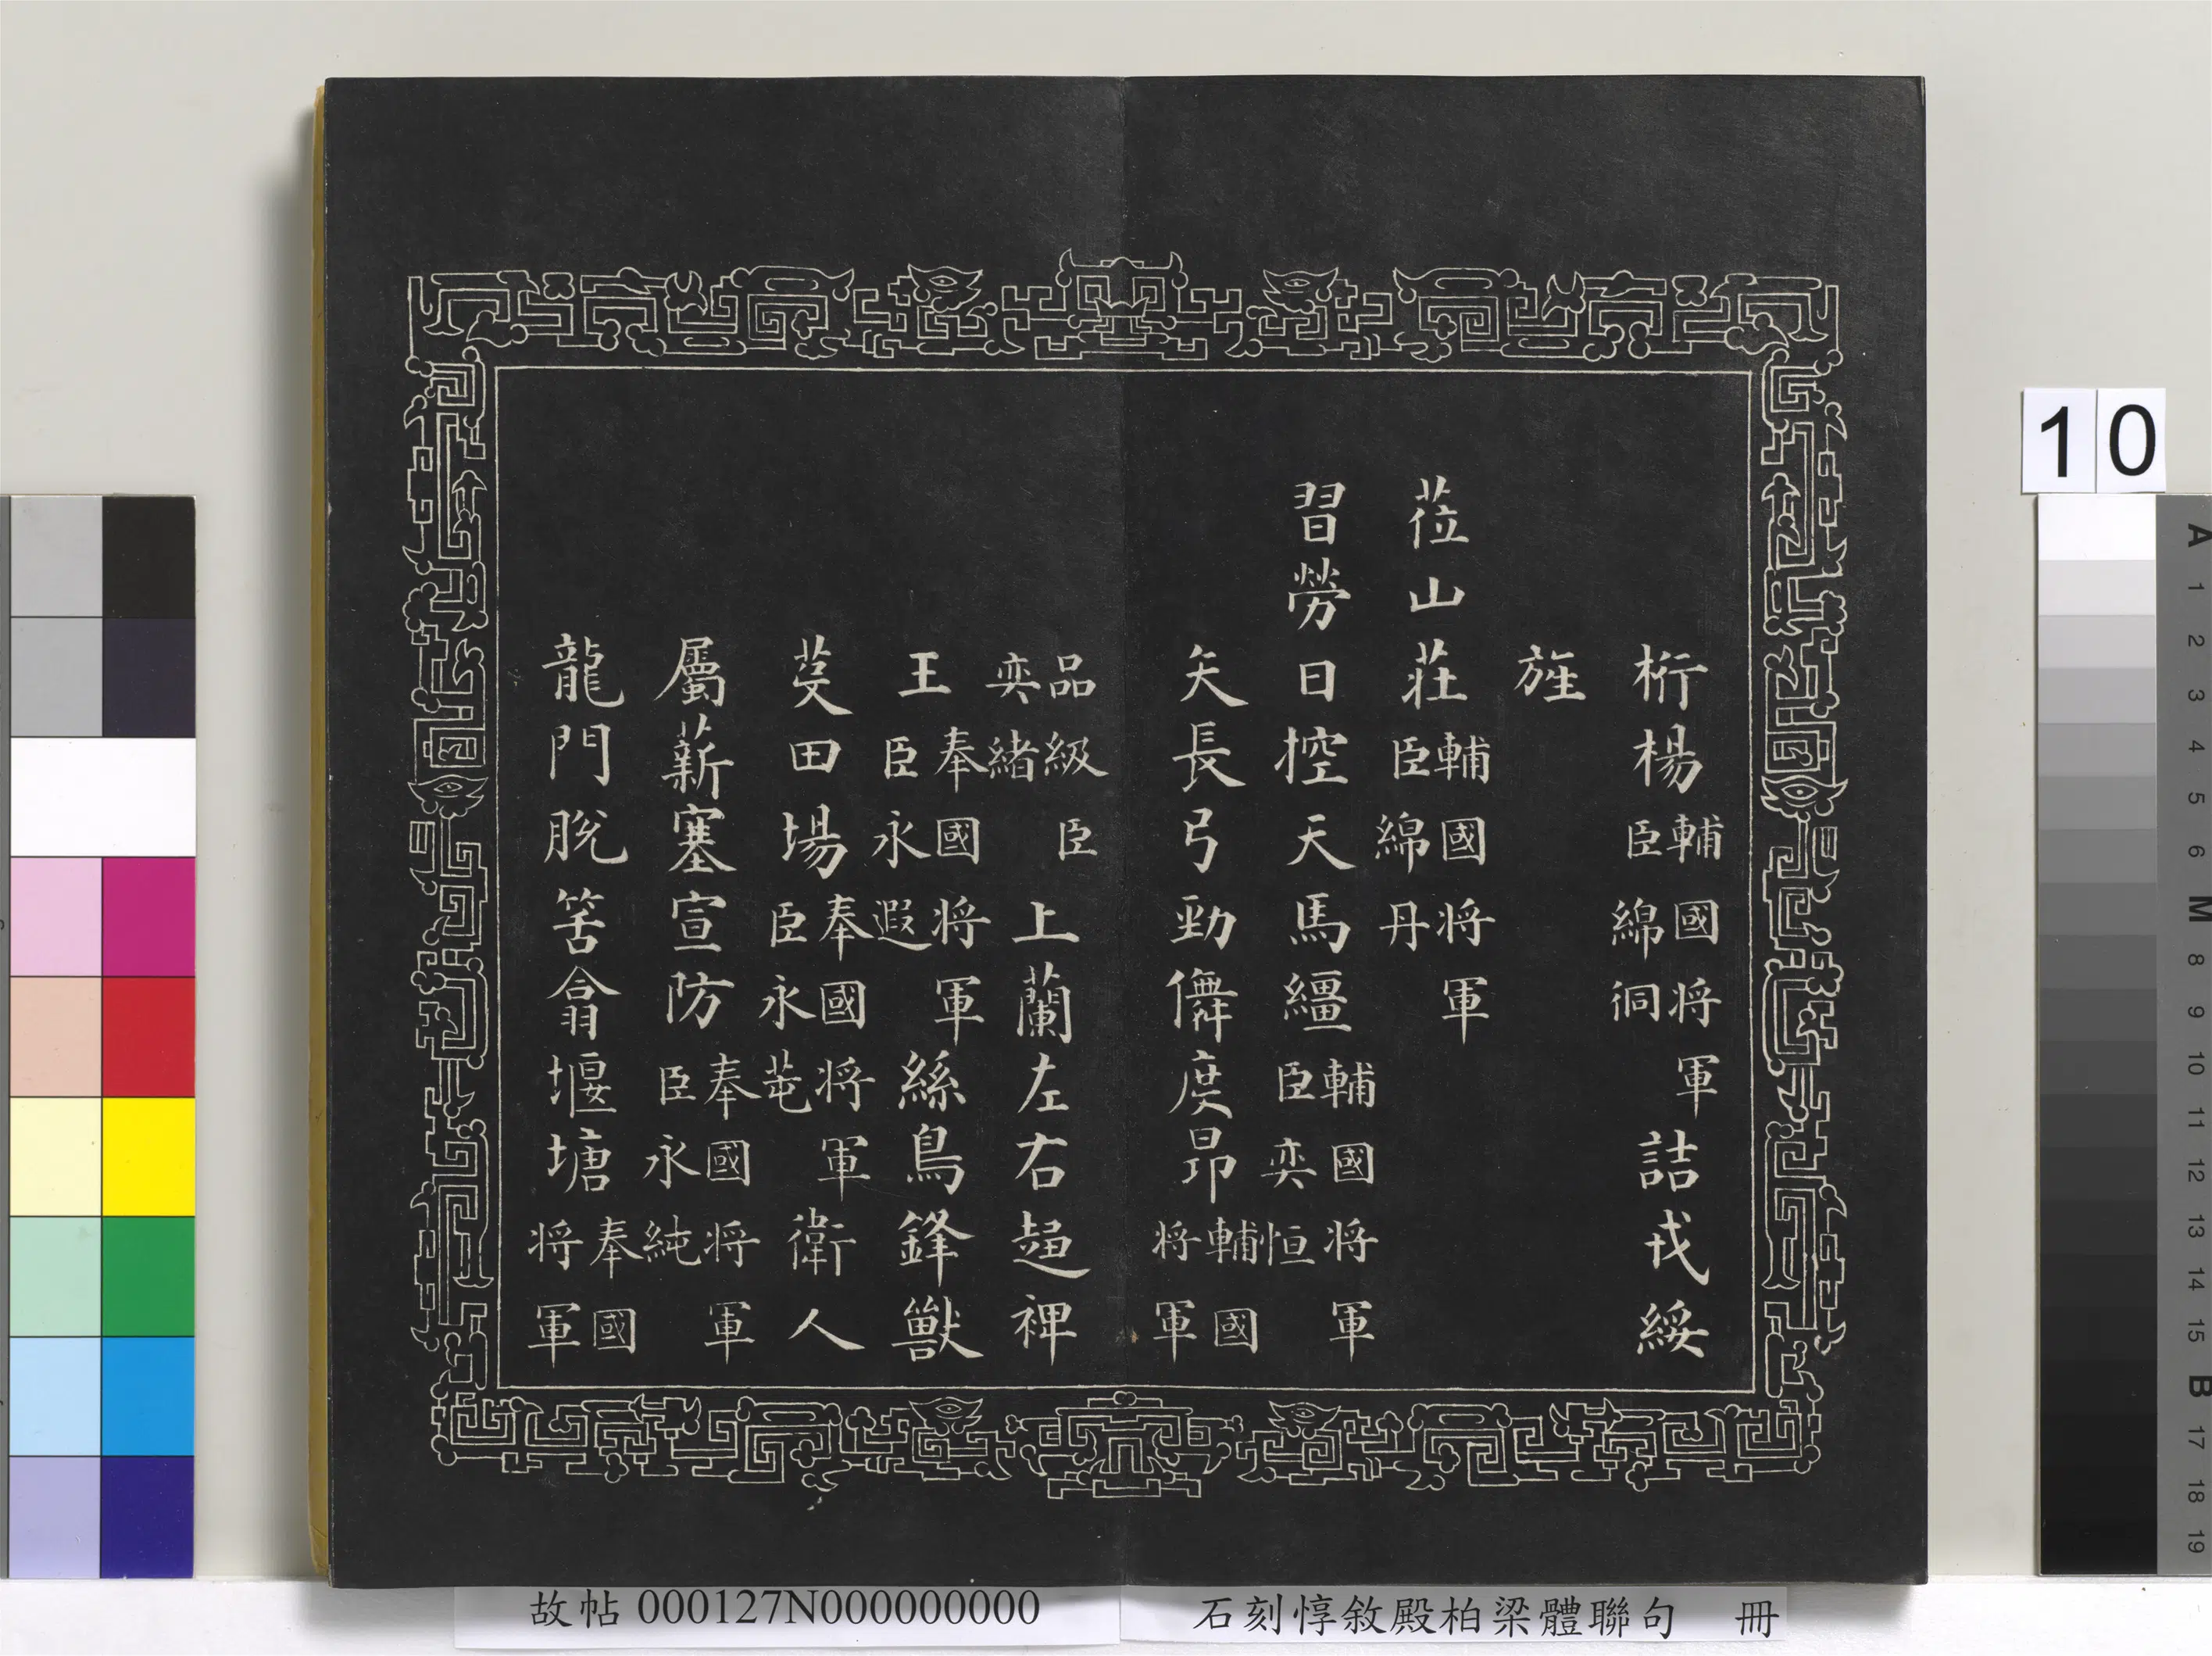 桁楊輔國将軍臣綿侗詰戎綏
旌
莅山莊輔國将軍臣綿丹
習勞日控天馬繮輔國将軍臣奕恒
矢長弓勁儛度昂輔國将軍
品級臣奕緒上蘭左右裨
王奉國将軍臣永遐絲鳥鋒獸
芟田場奉國将軍臣永芚衛人
屬薪塞宣防奉國将軍臣永純
龍門脫筈翕堰塘奉國将軍
故帖 000127N000000000
石刻惇敘殿柏梁體聯句 冊
10
A 1 2 3 4 5 6 M 8 9 10 11 12 13 14 15 B 17 18 19